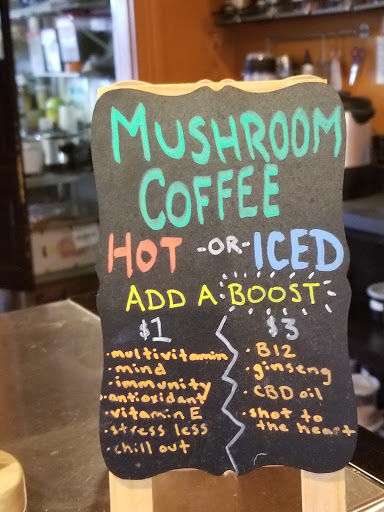 MUSHROOM
COFFEE
HOT -OR- ICED
ADD A BOOST
$1
• multivitamin
• mind
• immunity
• antioxidant
• vitamin E
• stress less
• chill out
$3
• B12
• ginseng
• CBD oil
• shot to
the heart